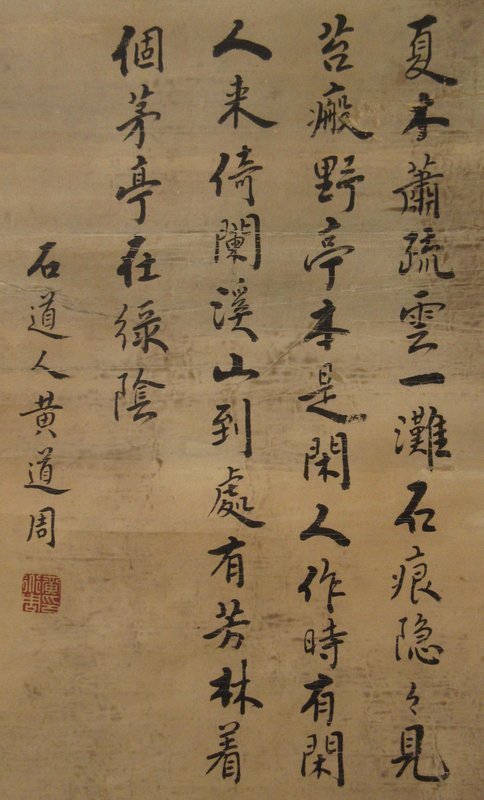 夏木蕭疏雲一灘石痕隐々見
苔瘢野亭本是閑人作時有閑
人来倚闌溪山到處有芳林着
個茅亭在緑陰
石道人黄道周